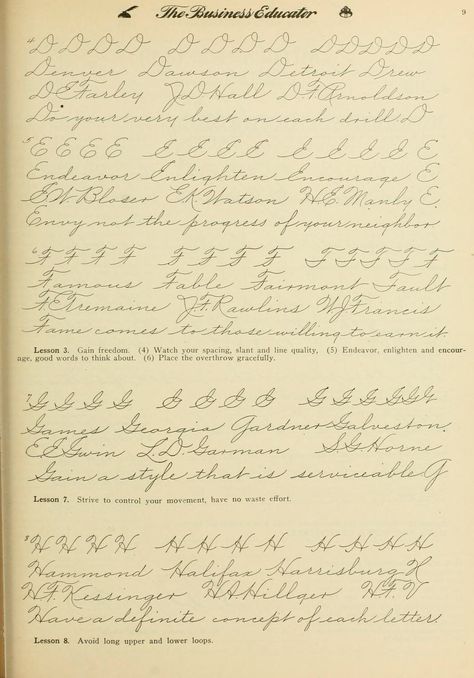 The Business Educator 9
4 D D D D D D D D D D D D D
Denver Dawson Detroit Drew
D.E. Farley J.D. Hall D.F. Arnoldson
Do your very best on each drill D
5 E E E E E E E E E E E E E E
Endeavor Enlighten Encourage E
E.W. Bloser E.K. Watson H.E. Manly E.
Envy not the progress of your neighbor
6 F F F F F F F F F F F F F
Famous Fable Fairmont Fault
F.E. Tremaine J.F. Rawlins W.J. Francis
Fame comes to those willing to earn it.
Lesson 3. Gain freedom. (4) Watch your spacing, slant and line quality, (5) Endeavor, enlighten and encour-
age, good words to think about. (6) Place the overthrow gracefully.
7 G G G G G G G G G G G G G G
Games Georgia Gardner Galveston.
E.E. Gwin L.D. Garman S.G. Horne
Gain a style that is serviceable G
Lesson 7. Strive to control your movement, have no waste effort.
8 H H H H H H H H H H H H
Hammond Halifax Harrisburg H
H.F. Kessinger H.A. Hillger
Have a definite concept of each letter.
Lesson 8. Avoid long upper and lower loops.